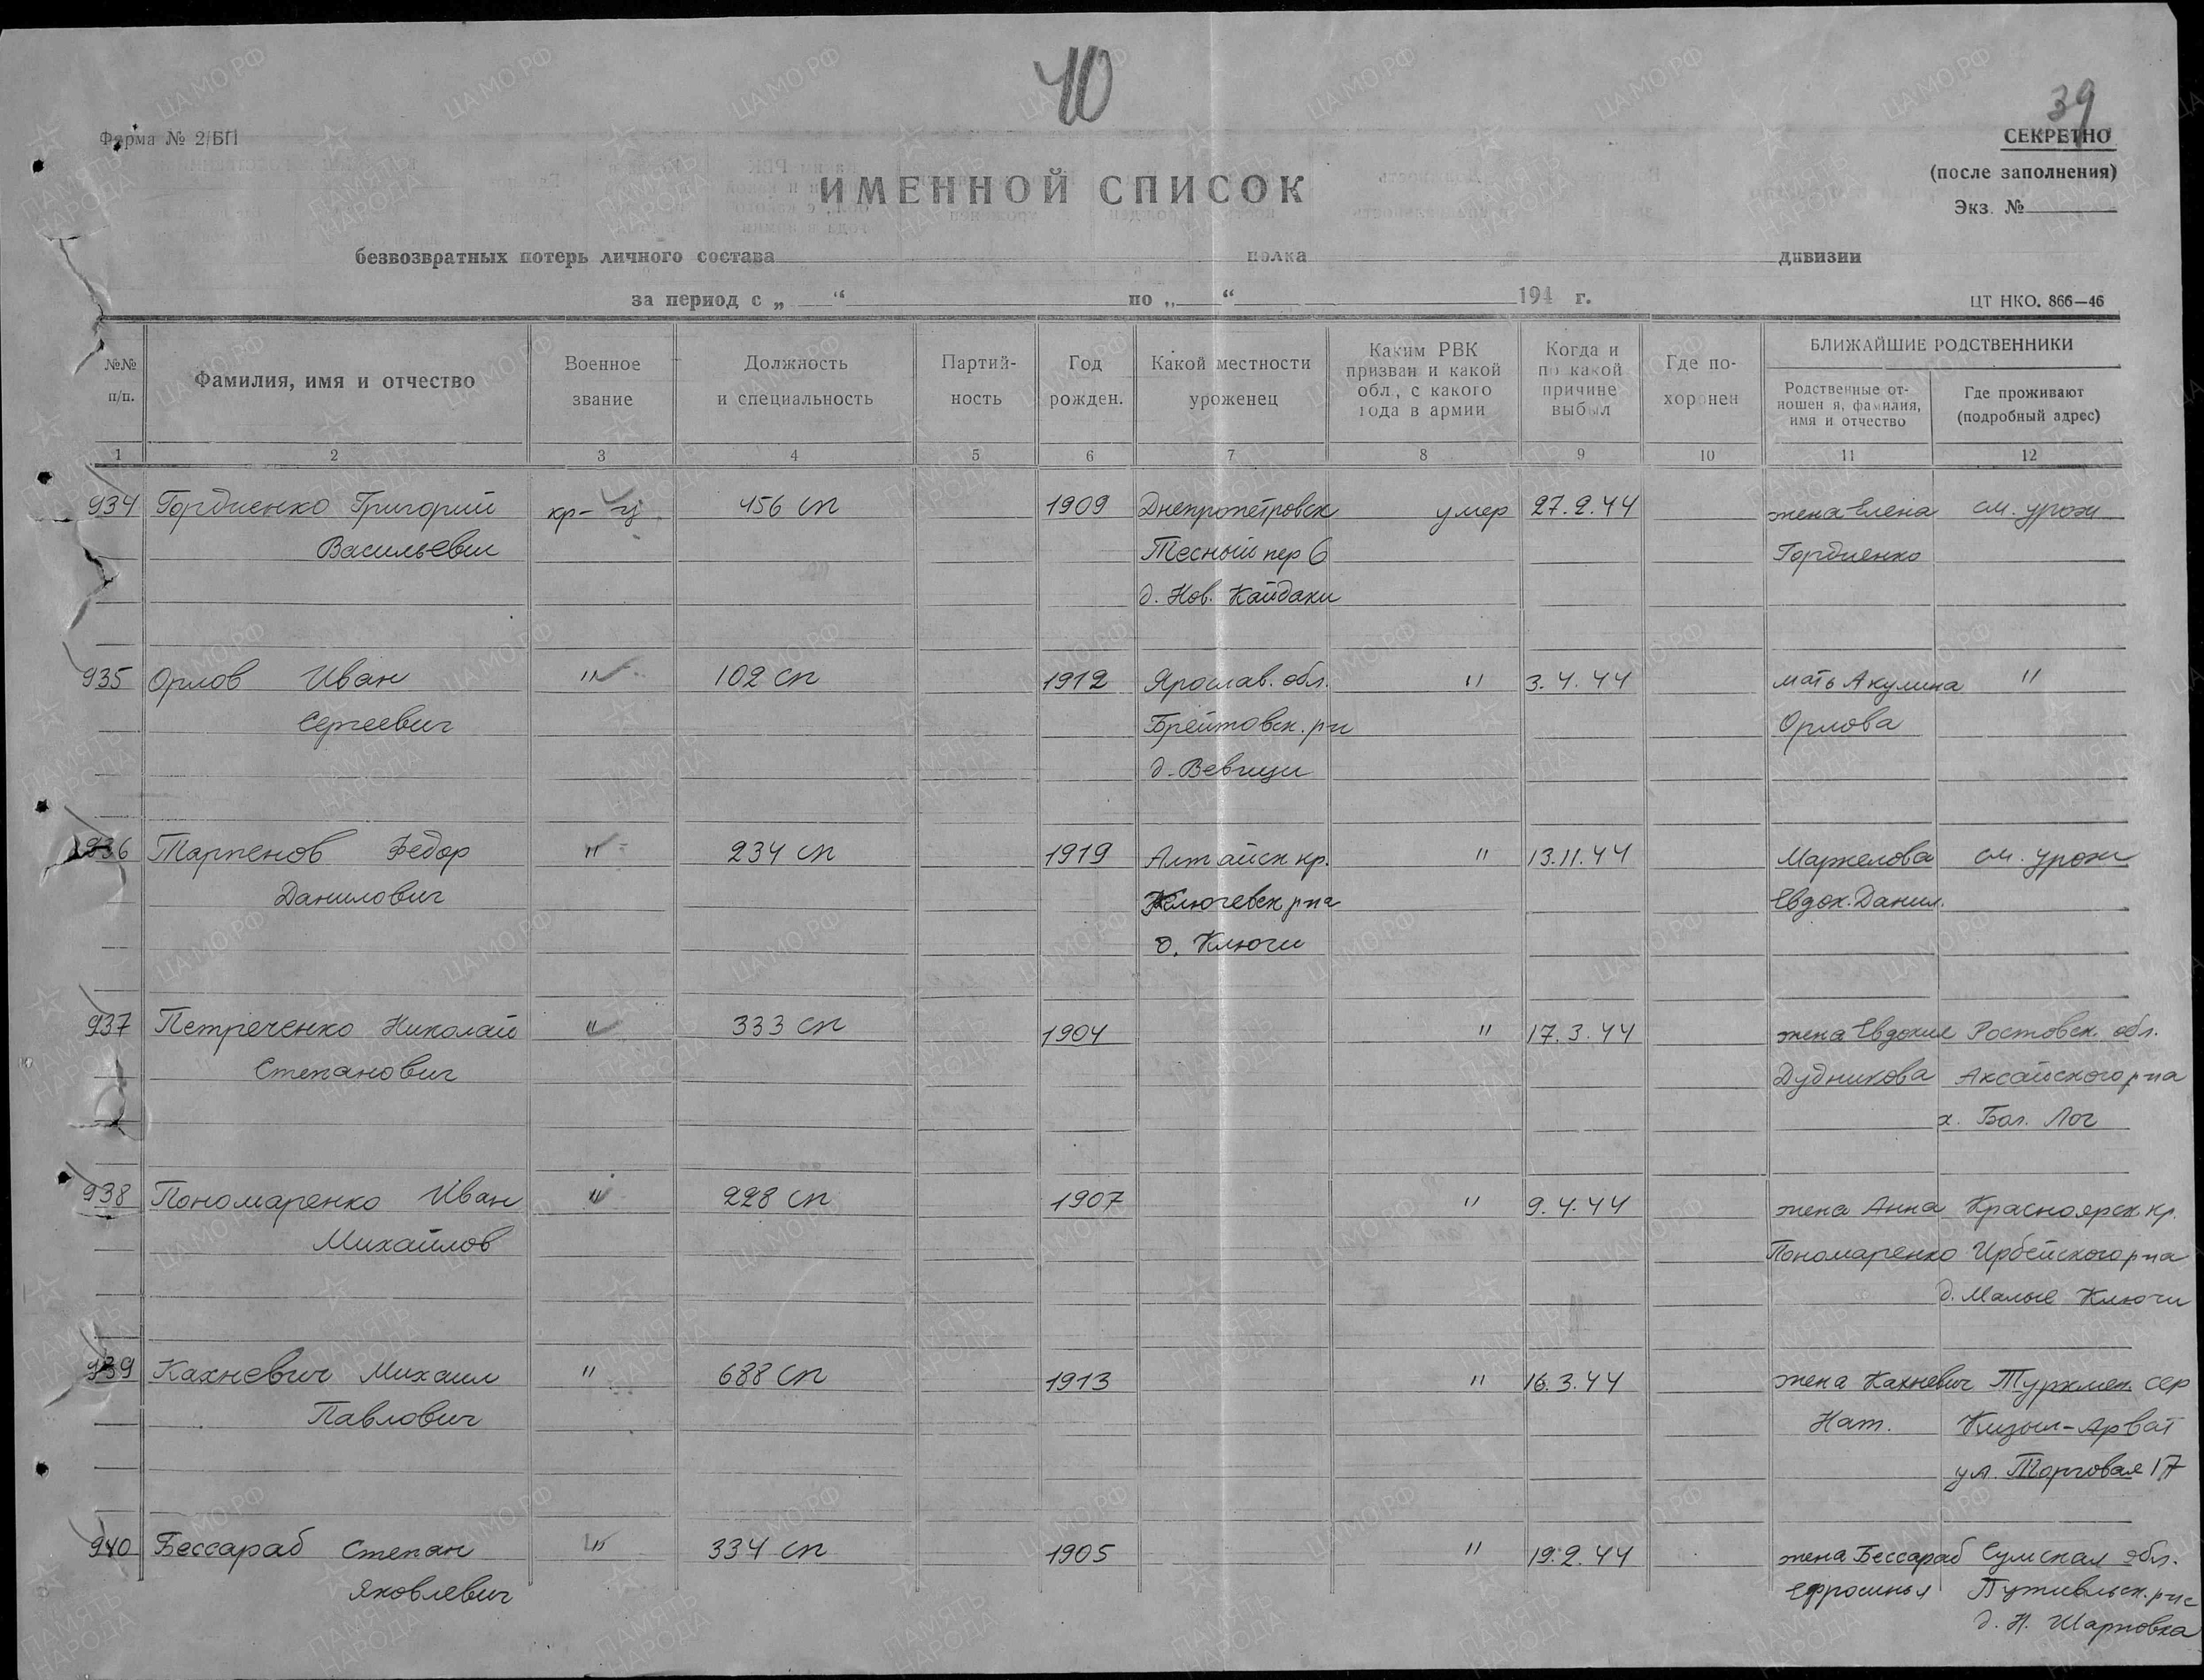 40
39
Форма № 2/БП
СЕКРЕТНО
(после заполнения)
Экз. №
ИМЕННОЙ СПИСОК
безвозвратных потерь личного состава полка дивизии
за период с „ “ по „ “ 194 г.
ЦТ НКО. 866—46
№№ п/п.
Фамилия, имя и отчество
Военное звание
Должность и специальность
Партийность
Год рожден.
Какой местности уроженец
Каким РВК призван и какой обл., с какого года в армии
Когда и по какой причине выбыл
Где похоронен
БЛИЖАЙШИЕ РОДСТВЕННИКИ
Родственные отношен я, фамилия, имя и отчество
Где проживают (подробный адрес)
1 2 3 4 5 6 7 8 9 10 11 12
934 Гордиенко Григорий кр-ц 456 сп 1909 Днепропетровск умер 27.2.44 жена Елена см. урож
Васильевич Тесный пер 6 Гордиенко
д. Нов. Кайдаки
935 Орлов Иван " 102 сп 1912 Ярослав. обл. " 3.4.44 мать Акулина "
Сергеевич Брейтовск. р-н Орлова
д.
936 Тарпенов Федор " 234 сп 1919 Алтайск кр. " 13.11.44 см. урож
Данилович Ключевск р-на Евдок. Данил.
с. Ключи
937 Петреченко Николай " 333 сп 1904 " 17.3.44 жена Евдокия Ростовск. обл.
Степанович Дудникова Аксайского р-на
х. Бол. Лог
938 Пономаренко Иван " 228 сп 1907 " 9.4.44 жена Анна Красноярск кр.
Михайлов Пономаренко Ирбейского р-на
д. Малые Ключи
939 Кахневич Михаил " 688 сп 1913 " 16.3.44 жена Кахневич Туркмен. сср
Павлович Нат. Кизыл-Арват
ул. Торговая 17
940 Бессараб Степан " 334 сп 1905 " 19.2.44 жена Бессараб Сумская обл.
Яковлевич Ефросинья Путивльск. р-на
д. Н. Шарповка